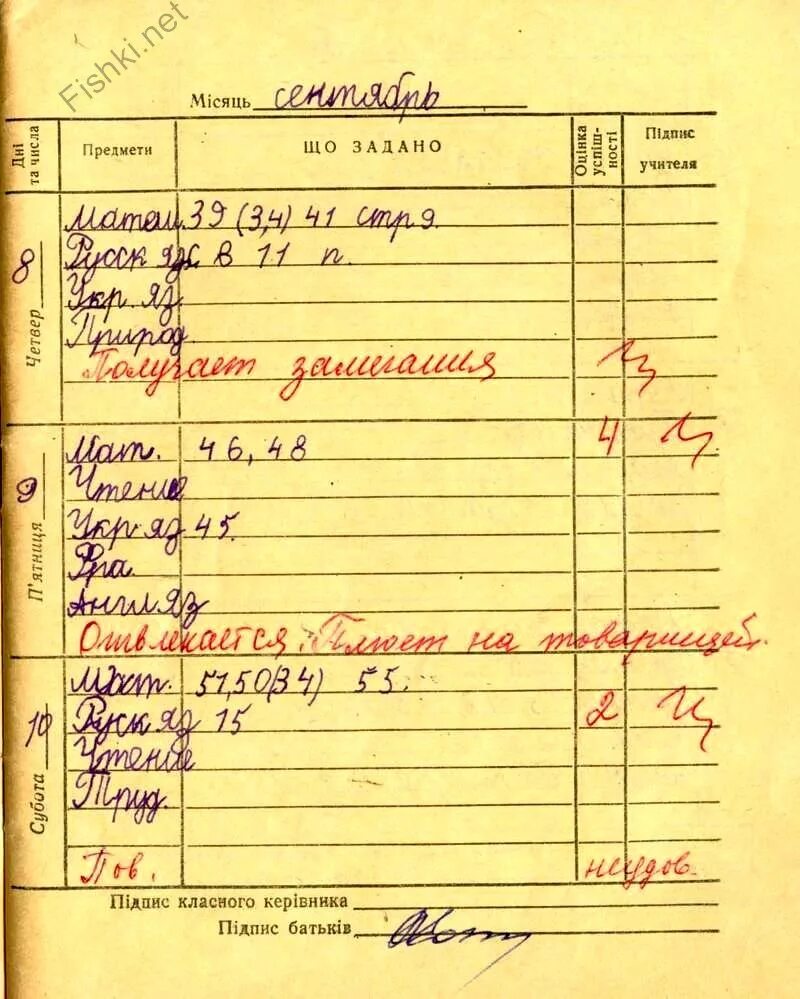 Fishki.net
Місяць сентябрь
Дні та числа Предмети ЩО ЗАДАНО Оцінка успіш-ності Підпис учителя
Четвер 8
Матем. 39 (3,4) 41 стр 9.
Русск яз. в 11 п.
Укр. яз.
Природ.
Получает замечания
П'ятниця 9
Мат. 46, 48 4
Чтение
Укр яз 45.
Фра.
Англ яз
Отвлекается. Плюет на товарищей.
Субота 10
Мат. 51,50(34) 55.
Руск яз 15 2
Чтение
Труд.
Пов. неудов.
Підпис класного керівника
Підпис батьків